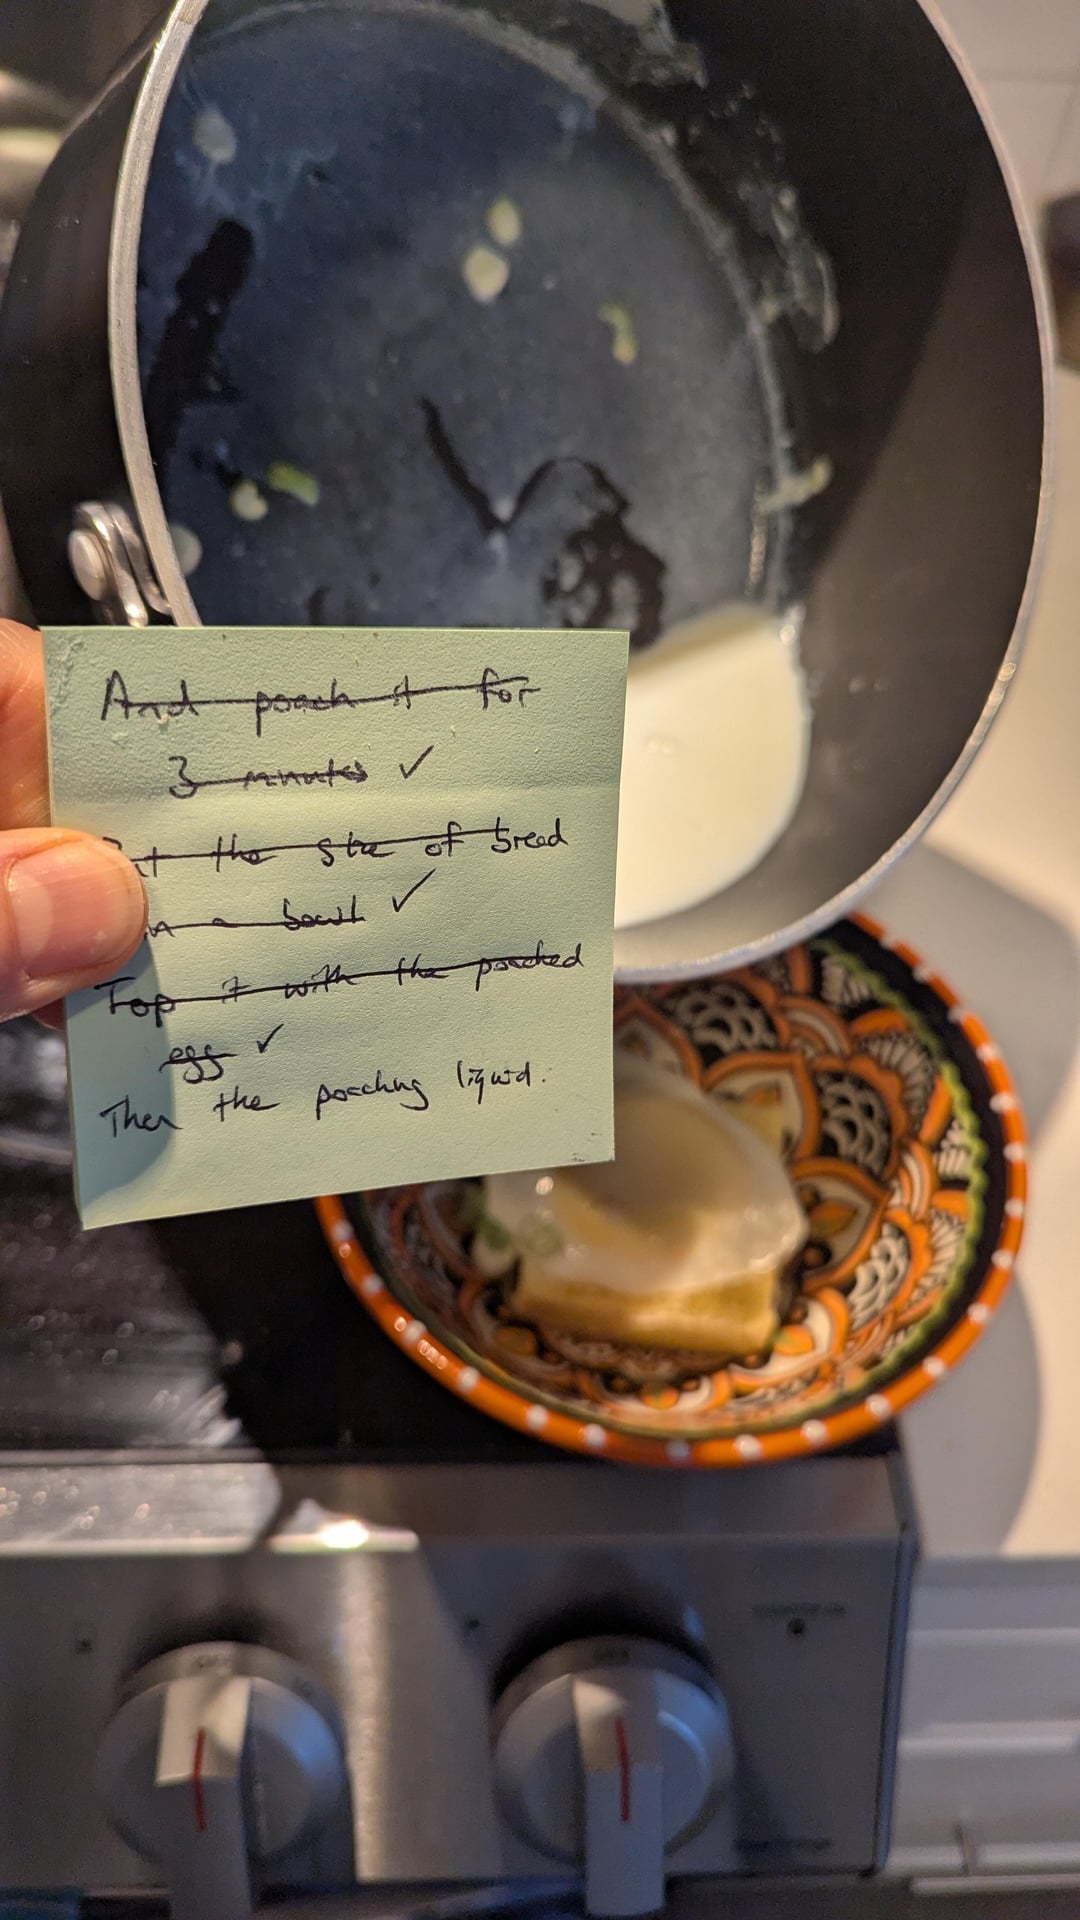 And poach it for
3 minutes ✓
the slice of bread
in a bowl ✓
Top it with the poached
egg ✓
Then the poaching liquid.
OFF
OFF